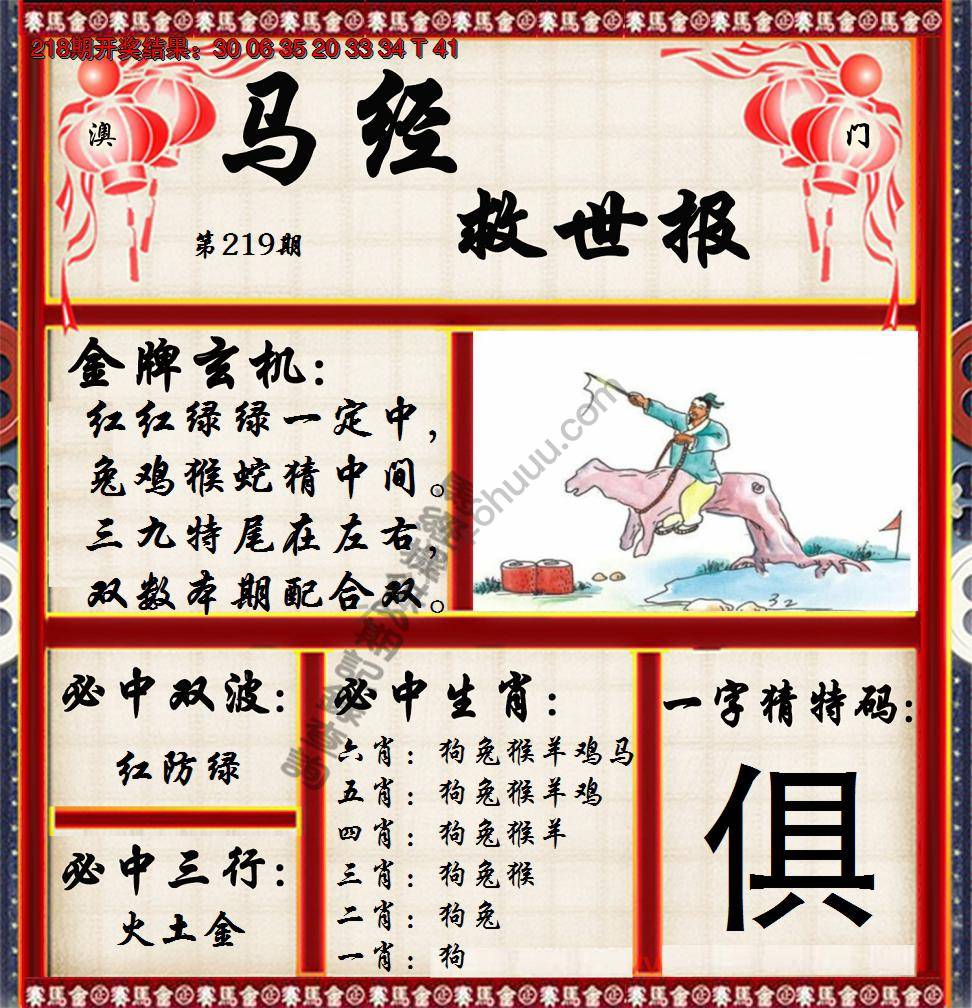 218期开奖结果：30 06 35 20 33 34 T 41
澳
门
马经
救世报
第219期
金牌玄机：
红红绿绿一定中，
兔鸡猴蛇猜中间。
三九特尾在左右，
双数本期配合双。
32
必中双波：
红防绿
必中三行：
火土金
必中生肖：
六肖：狗兔猴羊鸡马
五肖：狗兔猴羊鸡
四肖：狗兔猴羊
三肖：狗兔猴
二肖：狗兔
一肖：狗
一字猜特码：
俱